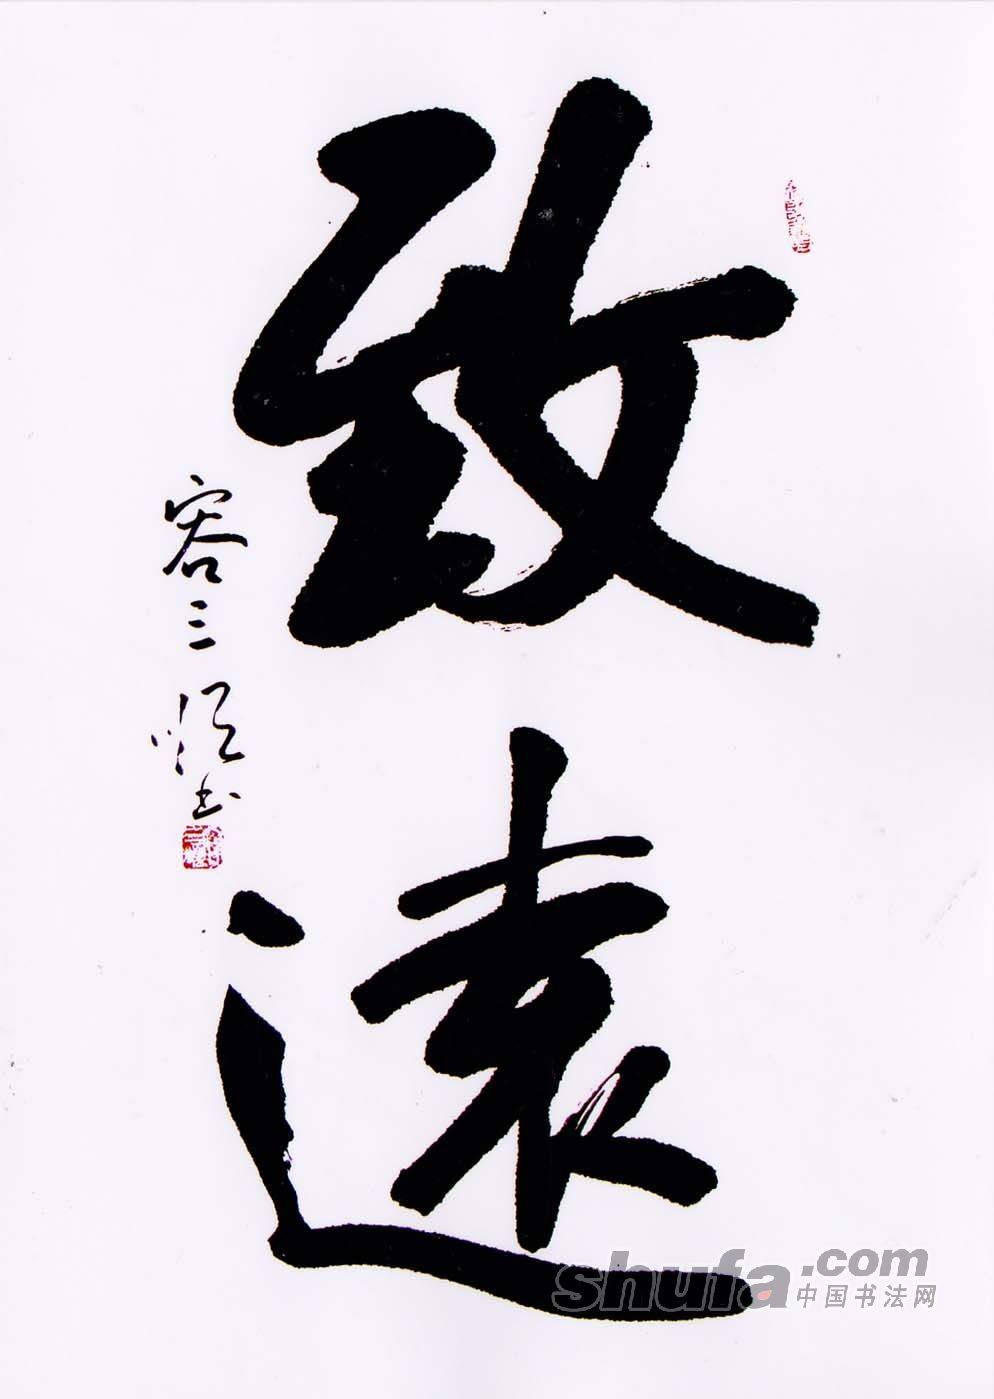 致遠
容三順书
shufa.com
中国书法网